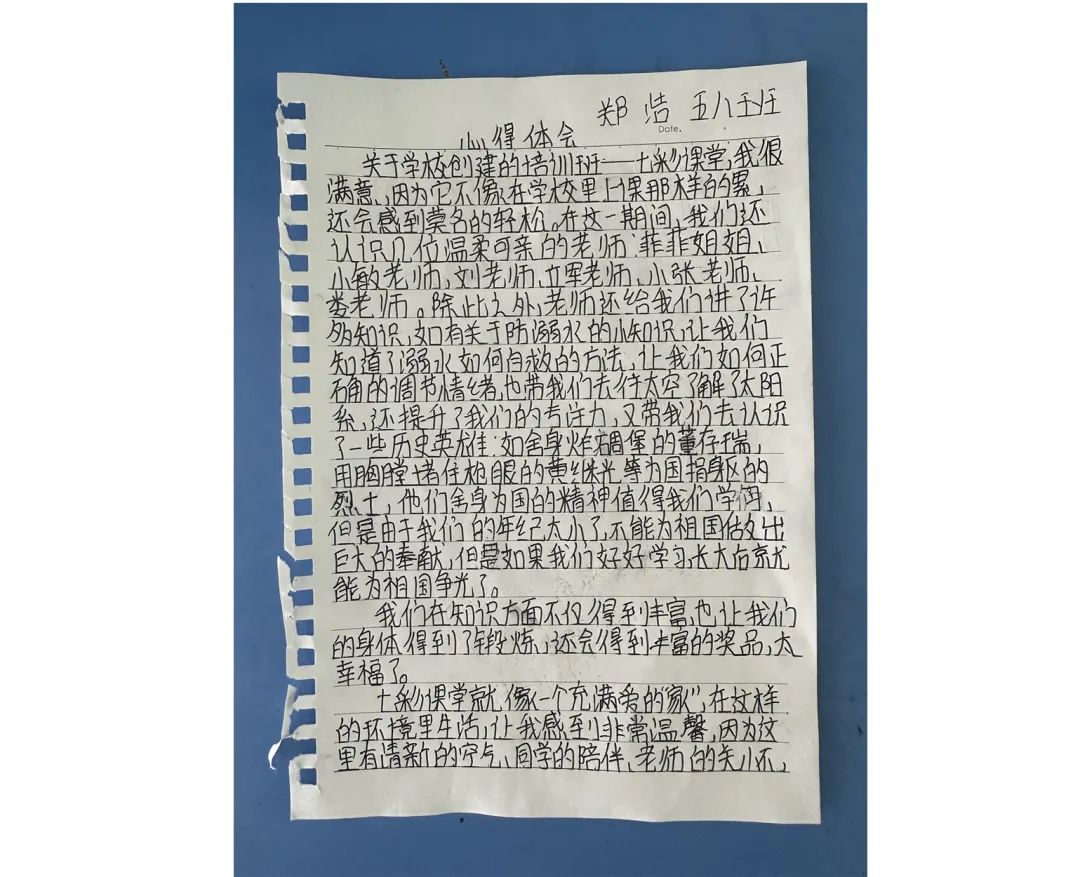 郑浩 五八班
Date.
心得体会
关于学校创建的培训班——七彩课堂,我很
满意、因为它不像在学校里上课那样的累,
还会感到莫名的轻松。在这一期间,我们还
认识几位温柔可亲的老师:菲菲姐姐、
小敏老师、刘老师、立军老师、小张老师、
娄老师。除此之外,老师还给我们讲了许
多知识,如有关于防溺水的小知识,让我们
知道了溺水如何自救的方法,让我们如何正
确的调节情绪,也带我们去往太空了解了太阳
系,还提升了我们的专注力,又带我们去认识
了一些历史英雄:如舍身炸碉堡的董存瑞,
用胸膛堵住枪眼的黄继光等为国捐身躯的
烈士,他们舍身为国的精神值得我们学习,
但是由于我们的年纪太小了,不能为祖国做出
巨大的奉献,但是如果我们好好学习,长大后就
能为祖国争光了。
我们在知识方面不仅得到丰富,也让我们
的身体得到了锻炼,还会得到丰富的奖品,太
幸福了。
七彩课堂就像一个充满爱的“家”,在这样
的环境里生活,让我感到非常温馨,因为这
里有清新的空气、同学的陪伴、老师的关怀,